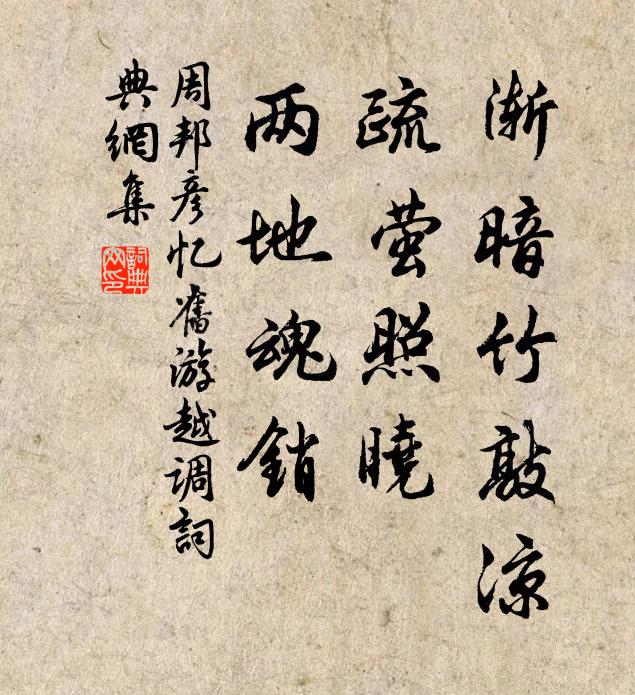 渐暗竹敲凉
疏萤照晓
两地魂销
周邦彦忆旧游越调词
典網集
詞典網印